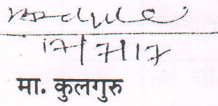 17/7/17
मा. कुलगुरु